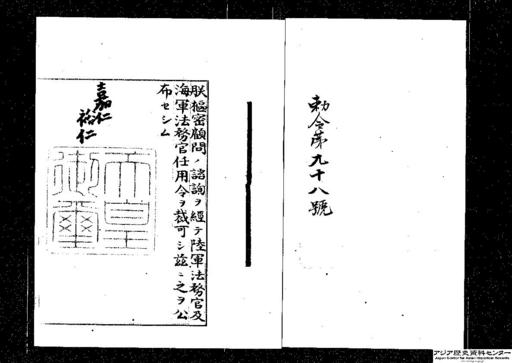 勅令第九十八號
朕樞密顧問ノ諮詢ヲ經テ陸軍法務官及
海軍法務官任用令ヲ裁可シ茲ニ之ヲ公
布セシム
嘉仁
裕仁
天皇
御璽
アジア歴史資料センター
Japan Center for Asian Historical Records